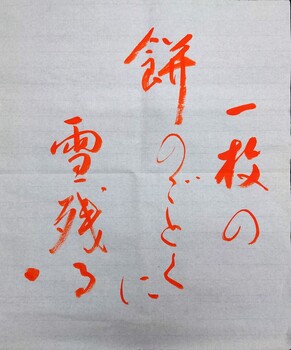 一枚の
餅のごとくに
雪残る